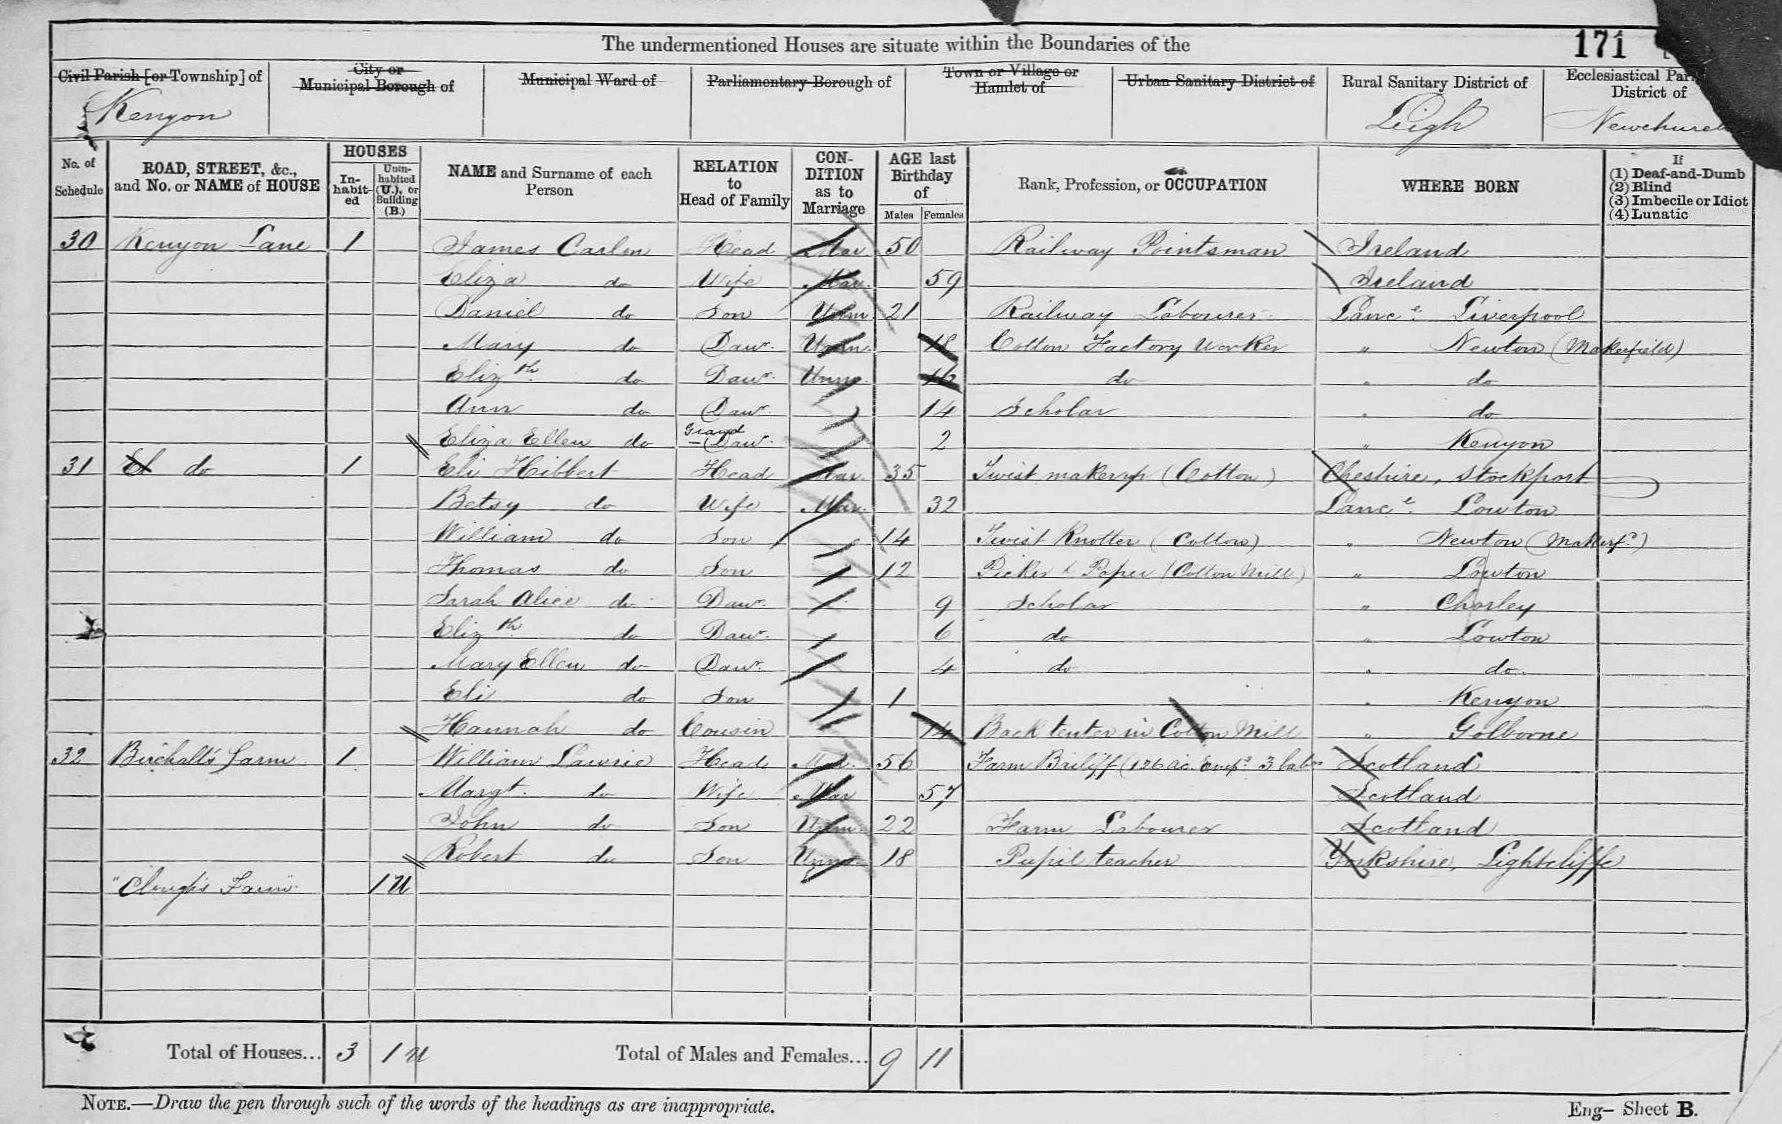 The undermentioned Houses are situate within the Boundaries of the 171
Civil Parish [or Township] of City or Municipal Borough of Municipal Ward of Parliamentary Borough of Town or Village or Hamlet of Urban Sanitary District of Rural Sanitary District of Ecclesiastical Par District of
Kenyon Leigh Newchurch
No. of Schedule ROAD, STREET, &c., and No. or NAME of HOUSE HOUSES In-habit-ed Unin-habited (U.), or Building (B.) NAME and Surname of each Person RELATION to Head of Family CON-DITION as to Marriage AGE last Birthday of Males Females Rank, Profession, or OCCUPATION WHERE BORN If (1) Deaf-and-Dumb (2) Blind (3) Imbecile or Idiot (4) Lunatic
30 Kenyon Lane 1 James Carlen Head Mar 50 Railway Pointsman Ireland
Eliza do Wife Mar. 59 Ireland
Daniel do Son Unm 21 Railway Labourer Lanc.e Liverpool
Mary do Daur. Unm. 18 Cotton Factory Worker " Newton (Makerfield)
Elizth do Daur. Unm. 16 do " do
Ann do Daur. 14 Scholar " do
Eliza Ellen do Grand-Daur. 2 " Kenyon
31 do 1 Eli Hibbert Head Mar. 35 Twist maker up (Cotton) Cheshire, Stockport
Betsy do Wife Mar. 32 Lanc.e Lowton
William do Son 14 Twist Knotter (Cotton) " Newton (Makerf.d)
Thomas do Son 12 Picker & Paper (Cotton Mill) " Lowton
Sarah Alice do Daur. 9 Scholar " Chorley
Elizth do Daur. 6 do " Lowton
Mary Ellen do Daur. 4 do " do
Eli do Son 1 " Kenyon
Hannah do Cousin 14 Back tenter in Cotton Mill " Golborne
32 Birchall's Farm 1 William Lawrie Head Mar. 56 Farm Bailiff (126 ac. Emp.g 3 labrs Scotland
Margt. do Wife Mar 57 Scotland
John do Son Unm. 22 Farm Labourer Scotland
Robert do Son Unm. 18 Pupil teacher Yorkshire, Lightcliffe
"Clough's Farm" 1 U
Total of Houses... 3 1 u Total of Males and Females... 9 11
NOTE.—Draw the pen through such of the words of the headings as are inappropriate. Eng— Sheet B.